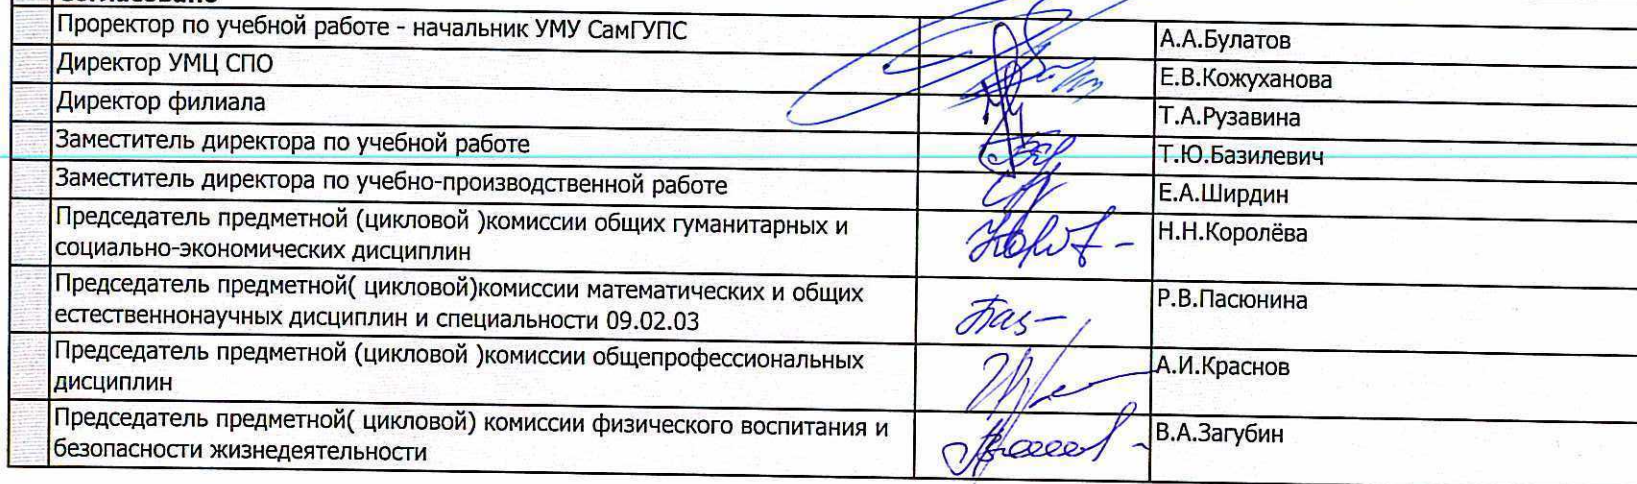 Согласовано
Проректор по учебной работе - начальник УМУ СамГУПС А.А.Булатов
Директор УМЦ СПО Е.В.Кожуханова
Директор филиала Т.А.Рузавина
Заместитель директора по учебной работе Т.Ю.Базилевич
Заместитель директора по учебно-производственной работе Е.А.Ширдин
Председатель предметной (цикловой )комиссии общих гуманитарных и Н.Н.Королёва
социально-экономических дисциплин
Председатель предметной( цикловой)комиссии математических и общих Р.В.Пасюнина
естественнонаучных дисциплин и специальности 09.02.03
Председатель предметной (цикловой )комиссии общепрофессиональных А.И.Краснов
дисциплин
Председатель предметной( цикловой) комиссии физического воспитания и В.А.Загубин
безопасности жизнедеятельности